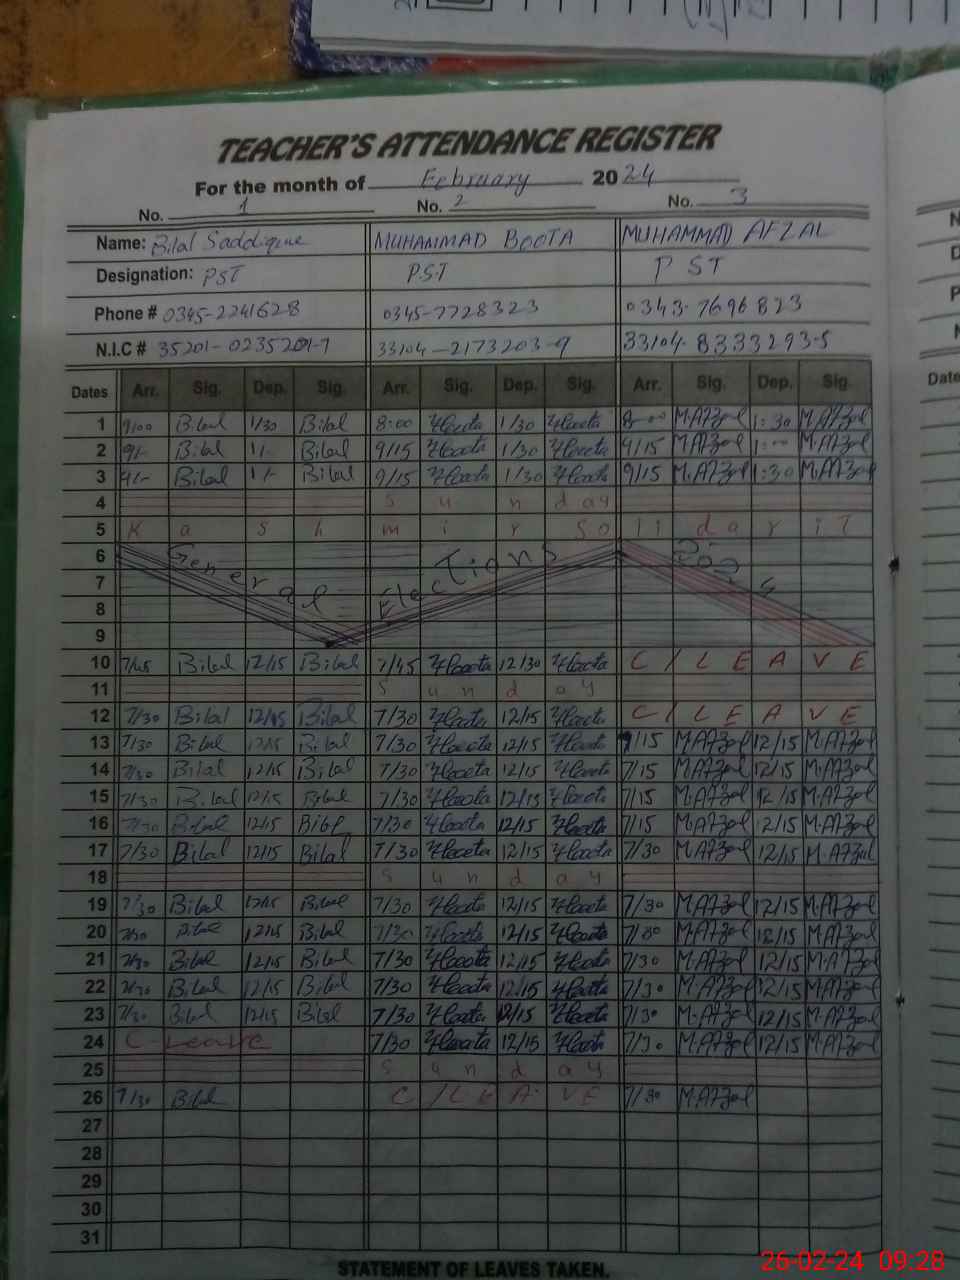 TEACHER'S ATTENDANCE REGISTER
For the month of February 2024
No. 1 No. 2 No. 3
Name: Bilal Saddique MUHAMMAD BOOTA MUHAMMAD AFZAL
Designation: PST P.S.T P ST
Phone # 0345-2241628 0345-7728323 0343-7696823
N.I.C # 35201-0235201-7 33104-2173203-9 33104-8333293-5
Dates Arr. Sig. Dep. Sig. Arr. Sig. Dep. Sig. Arr. Sig. Dep. Sig.
1 9/00 Bilal 1/30 Bilal 8:00 Hoota 1/30 Hoota 8:00 M.AFzal 1:30 M.AFzal
2 9/- Bilal 1/- Bilal 9/15 Hoota 1/30 Hoota 9/15 M.AFzal 1:00 M.AFzal
3 9/- Bilal 1/- Bilal 9/15 Hoota 1/30 Hoota 9/15 M.AFzal 1:30 M.AFzal
4 Sunday
5 Kashmir Solidarity
6 General Elections
7
8
9
10 7/45 Bilal 12/15 Bilal 7/45 Hoota 12/30 Hoota C/LEAVE
11 Sunday
12 7/30 Bilal 12/15 Bilal 7/30 Hoota 12/15 Hoota C/LEAVE
13 7/30 Bilal 12/15 Bilal 7/30 Hoota 12/15 Hoota 7/15 M.AFzal 12/15 M.AFzal
14 7/30 Bilal 12/15 Bilal 7/30 Hoota 12/15 Hoota 7/15 M.AFzal 12/15 M.AFzal
15 7/30 Bilal 12/15 Bilal 7/30 Hoota 12/15 Hoota 7/15 M.AFzal 12/15 M.AFzal
16 7/30 Bilal 12/15 Bilal 7/30 Hoota 12/15 Hoota 7/15 M.AFzal 12/15 M.AFzal
17 7/30 Bilal 12/15 Bilal 7/30 Hoota 12/15 Hoota 7/30 M.AFzal 12/15 M.AFzal
18 Sunday
19 7/30 Bilal 12/15 Bilal 7/30 Hoota 12/15 Hoota 7/30 M.AFzal 12/15 M.AFzal
20 7/30 Bilal 12/15 Bilal 7/30 Hoota 12/15 Hoota 7/30 M.AFzal 12/15 M.AFzal
21 7/30 Bilal 12/15 Bilal 7/30 Hoota 12/15 Hoota 7/30 M.AFzal 12/15 M.AFzal
22 7/30 Bilal 12/15 Bilal 7/30 Hoota 12/15 Hoota 7/30 M.AFzal 12/15 M.AFzal
23 7/30 Bilal 12/15 Bilal 7/30 Hoota 12/15 Hoota 7/30 M.AFzal 12/15 M.AFzal
24 C-Leave 7/30 Hoota 12/15 Hoota 7/30 M.AFzal 12/15 M.AFzal
25 Sunday
26 7/30 Bilal C/LEAVE 7/30 M.AFzal
27
28
29
30
31
STATEMENT OF LEAVES TAKEN.
26-02-24 09:28